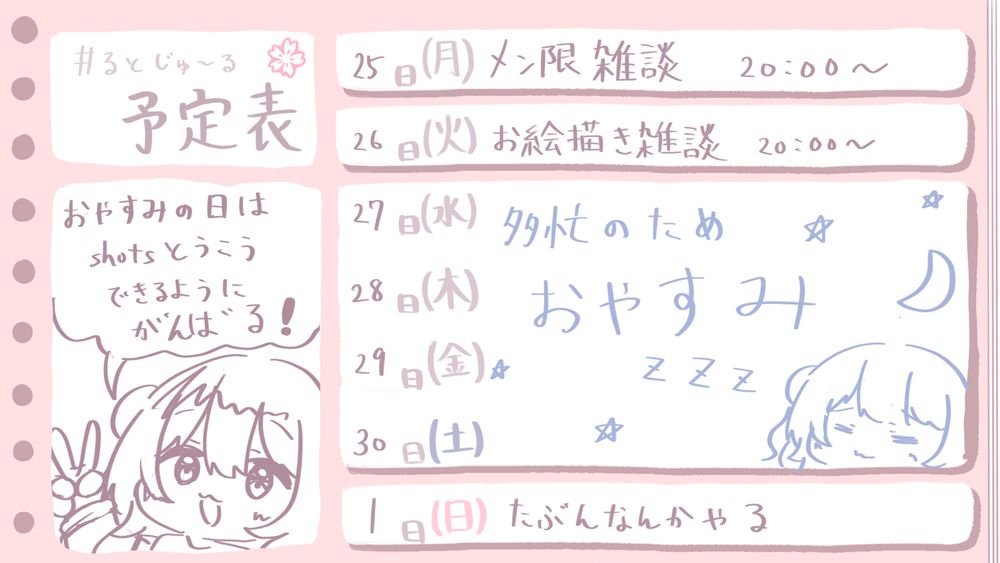 #るとじゅ〜る
予定表
おやすみの日は
shotsとうこう
できるように
がんばる!
25日(月) メン限雑談 20:00〜
26日(火) お絵描き雑談 20:00〜
27日(水) 多忙のため
28日(木) おやすみ
29日(金) z z z
30日(土)
1日(日) たぶんなんかやる